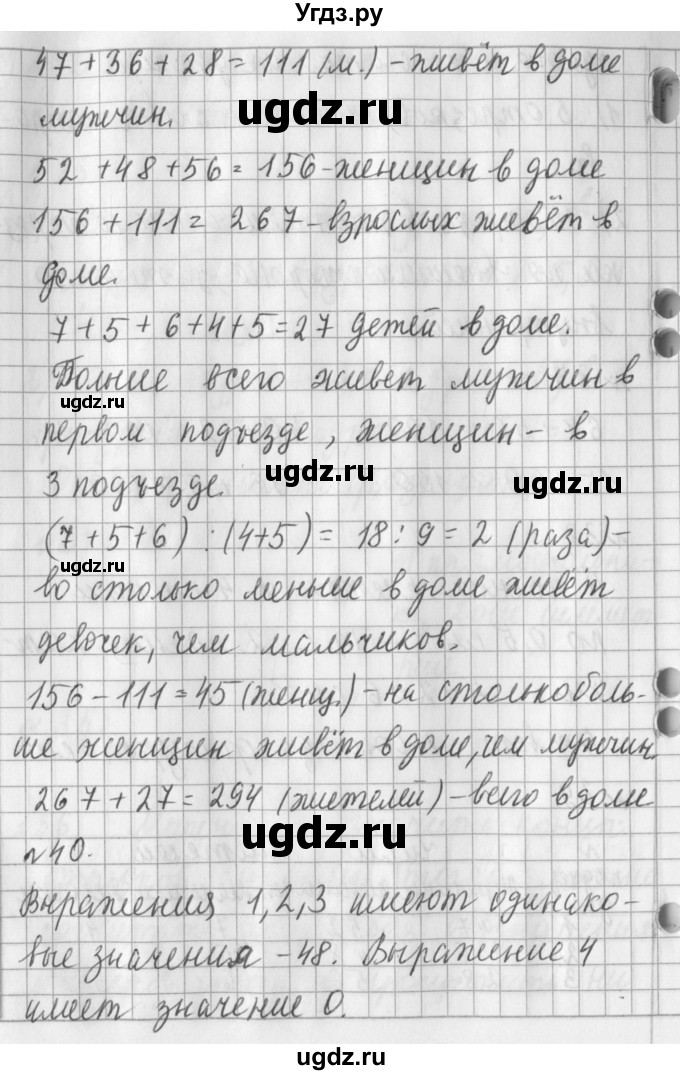 Угдз.ру
47+36+28=111 (м.) - живёт в доме
ugdz.ru
мужчин.
52+48+56=156-женщин в доме
156+111= 267-взрослых живёт в
доме.
ugdz.ru
7+5+6+4+5=27 детей в доме.
Больше всего живет мужчин в
ugdz.ru
первом подъезде, женщин- в
3 подъезде.
ugdz.ru
ugdz.ru
(7+5+6) : (4+5) = 18 : 9 = 2 (раза)-
ugdz.ru
во столько меньше в доме живёт
девочек, чем мальчиков.
ugdz.ru
156-111=45 (женщ.)-на столько боль-
ше женщин живёт в доме, чем мужчин.
267+27=294 (жителей)-всего в доме
ugdz.ru
№40.
Выражения 1,2,3 имеют одинако-
вые значения -48. Выражение 4
имеет значение 0.
ugdz.ru